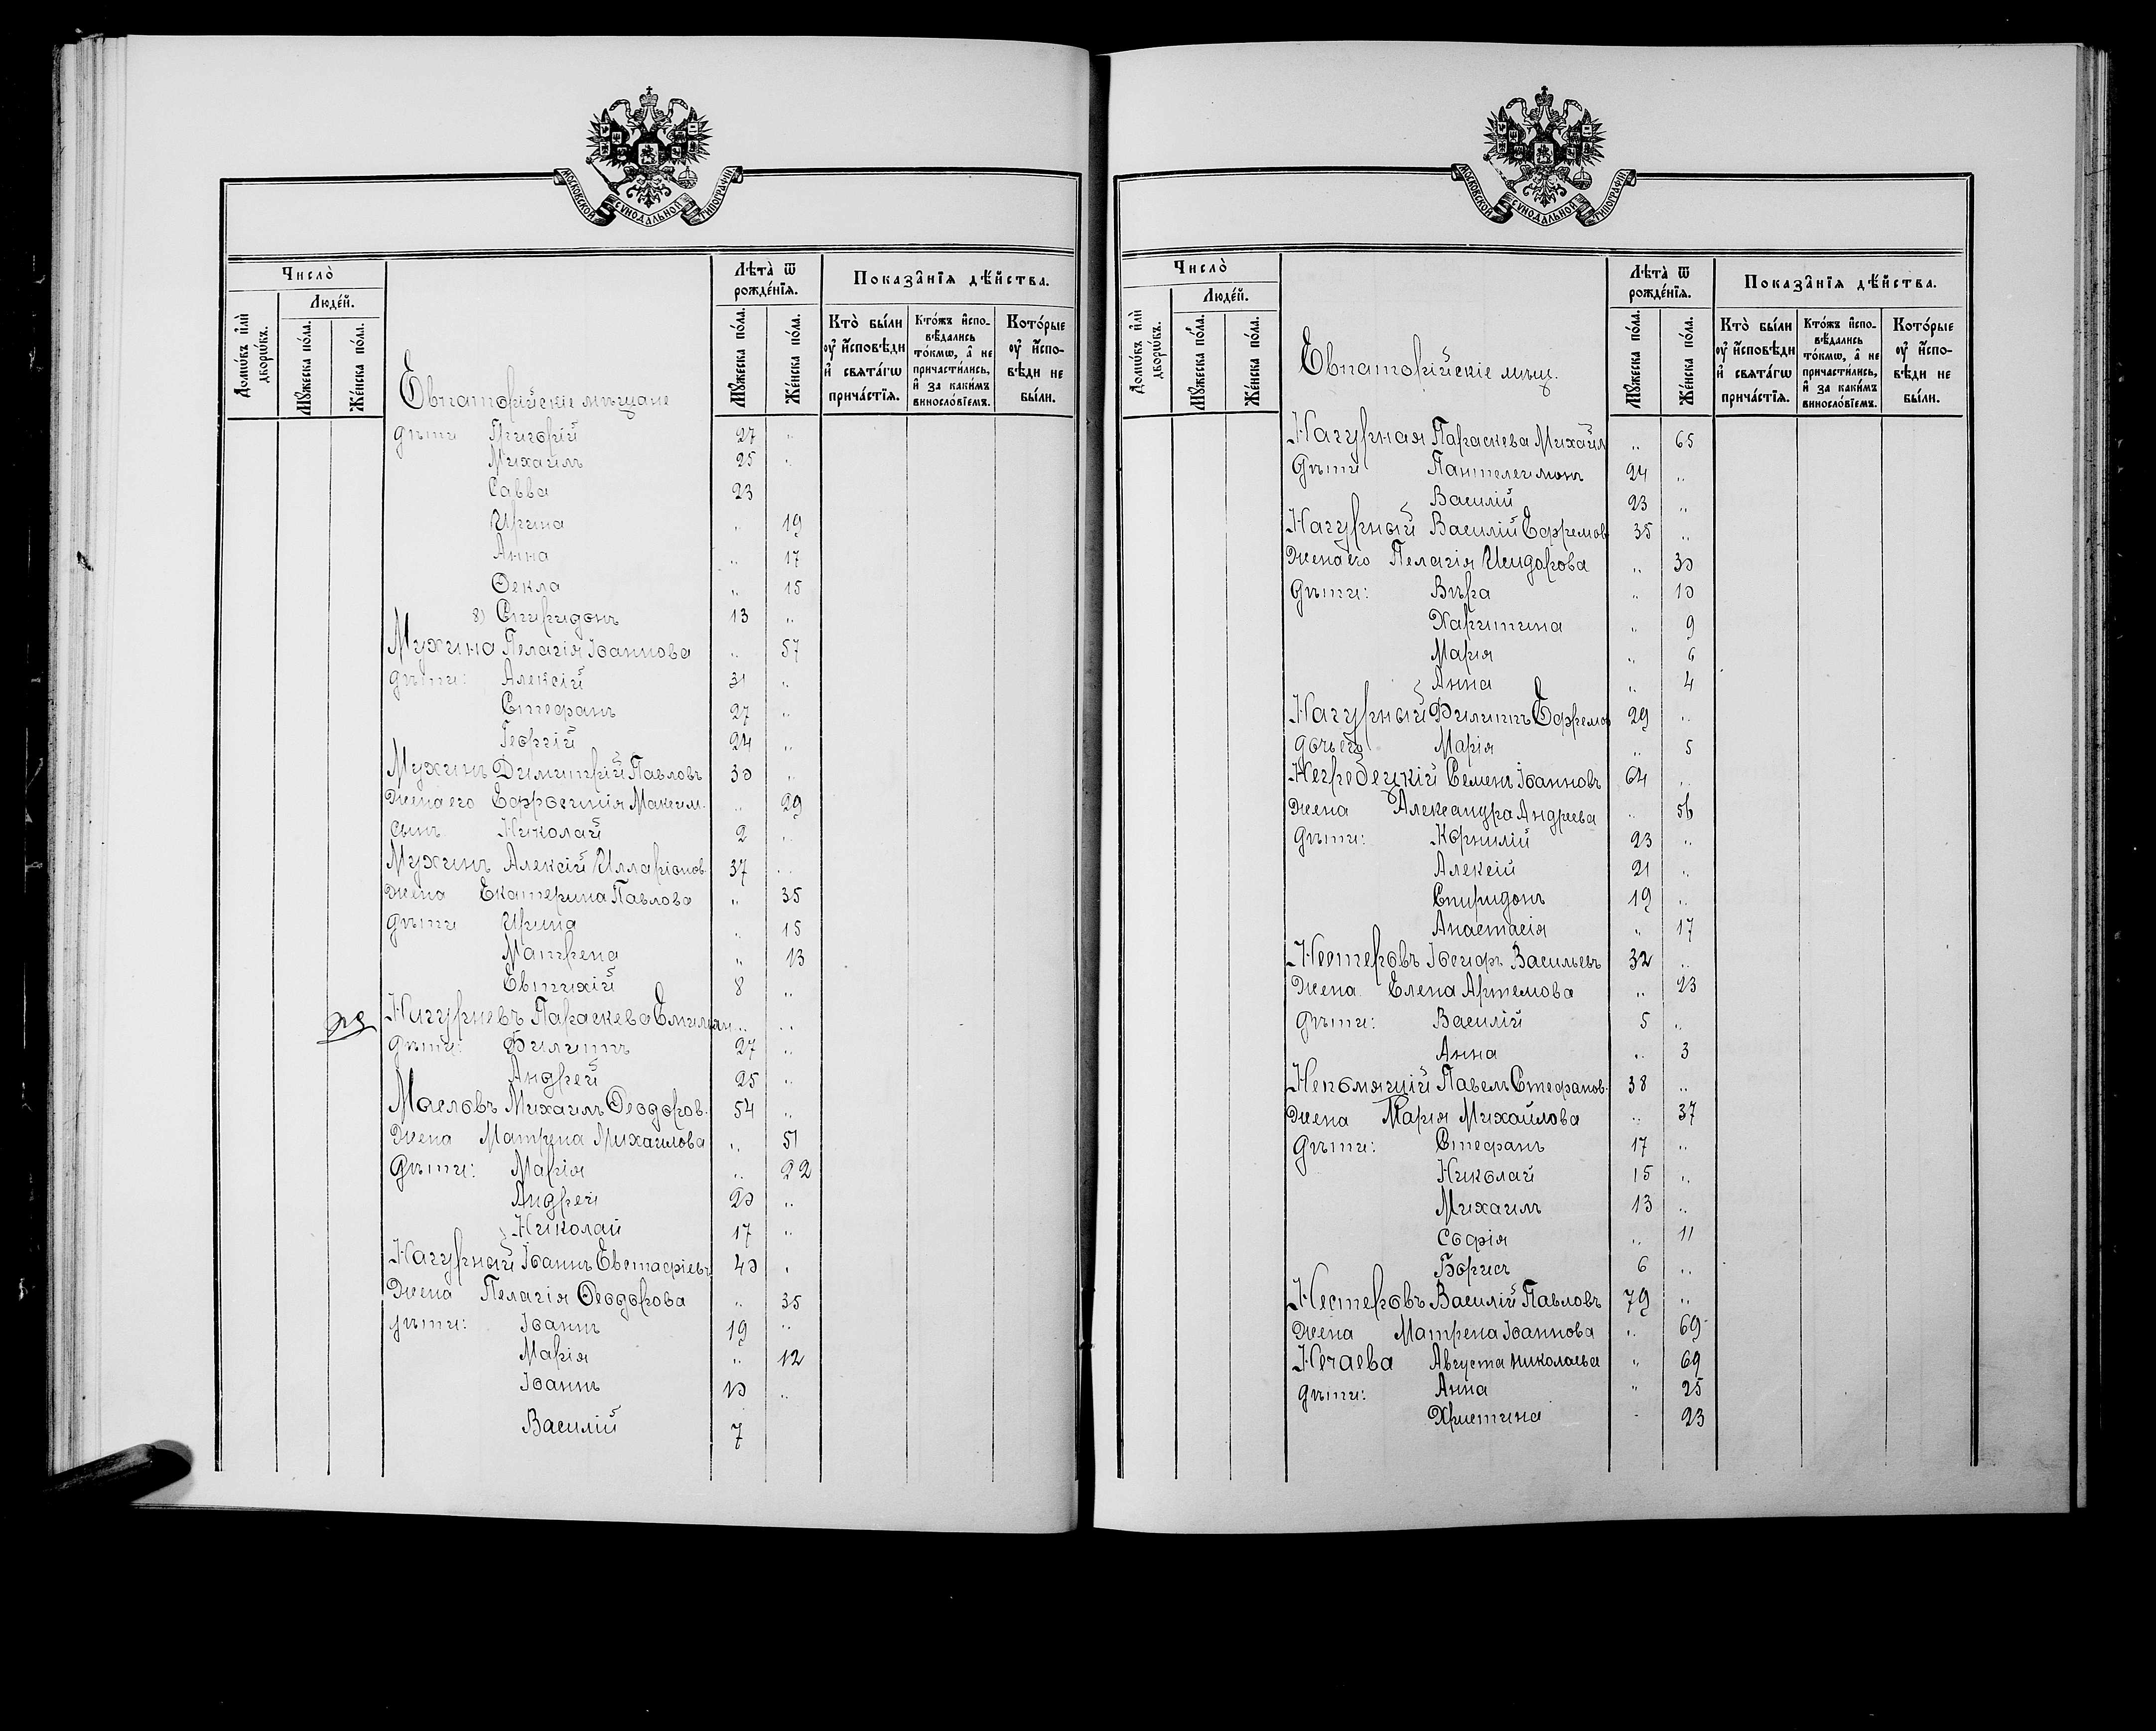 МОСКОВСКОЙ СУНОДАЛЬНОЙ ТИПОГРАФІИ
Число̀
Люде́й.
Домѡ́въ и҆лѝ дворѡ́въ.
Мꙋ́жеска по́ла.
Же́нска по́ла.
Лѣта̀ ѿ рожде́нїѧ.
Мꙋ́жеска по́ла.
Же́нска по́ла.
Показа̑нїѧ дѣ́йства.
Кто̀ бы́ли ᲂу҆ и҆́сповѣди и҆ свѧта́гѡ прича́стїѧ.
Кто́жъ и҆спо-
вѣ́дались
то́кмѡ, а҆ не
причасти́лись,
и҆ за каки́мъ
виносло́вїемъ.
Кото́рые ᲂу҆ и҆́спо-
вѣди не бы́ли.
Евпаторійскіе мѣщане
дѣти Григорій 27 "
Михаилъ 25 "
Савва 23
Ирина " 19
Анна " 17
Ѳекла " 15
8) Спиридонъ 13 "
Мухина Пелагія Іоаннова " 57
дѣти: Алексій 31 "
Стефанъ 27 "
Георгій 24 "
Мухинъ Димитрій Павловъ 30 "
Жена его Ефросинія Максим. " 29
сынъ Николай 2 "
Мухинъ Алексій Илларіонов. 37 "
Жена Екатерина Павлова " 35
дѣти Ирина " 15
Матрена " 13
Евтихій 8 "
Параскева Емилиан " "
дѣти: Филиппъ 27 "
Андрей 25 "
Масловъ Михаилъ Ѳеодоров. 54 "
Жена Матрена Михаилова " 51
Дѣти: Марія " 22
Андрей 20 "
Николай 17 "
Нагурный Іоаннъ Евстафіевъ 40 "
Жена Пелагія Ѳеодорова " 35
дѣти: Іоаннъ 19 "
Марія " 12
Іоаннъ 10 "
Василій 7
МОСКОВСКОЙ СУНОДАЛЬНОЙ ТИПОГРАФІИ
Число̀
Люде́й.
Домѡ́въ и҆лѝ дворѡ́въ.
Мꙋ́жеска по́ла.
Же́нска по́ла.
Лѣта̀ ѿ рожде́нїѧ.
Мꙋ́жеска по́ла.
Же́нска по́ла.
Показа̑нїѧ дѣ́йства.
Кто̀ бы́ли ᲂу҆ и҆́сповѣди и҆ свѧта́гѡ прича́стїѧ.
Кто́жъ и҆спо-
вѣ́дались
то́кмѡ, а҆ не
причасти́лись,
и҆ за каки́мъ
виносло́вїемъ.
Кото́рые ᲂу҆ и҆́спо-
вѣди не бы́ли.
Евпаторійскіе мѣщ.
Нагурная Параскева Михаил " 65
Дѣти Пантелеимонъ 24 "
Василій 23 "
Нагурный Василій Ефремов 35 "
Жена его Пелагія Исидорова " 30
Дѣти: Вѣра " 10
Харитина " 9
Марія " 6
Анна " 4
Нагурный Филиппъ Ефремов 29 "
дочь его Марія " 5
Негребецкій Семенъ Іоанновъ 64 "
Жена Александра Андреева " 56
Дѣти: Корнилій 23 "
Алексій 21 "
Спиридонъ 19 "
Анастасія " 17
Нестеровъ Іосифъ Васильевъ 32 "
Жена Елена Артемова " 23
Дѣти: Василій 5 "
Анна " 3
Непомящій Павелъ Стефанов. 38 "
Жена Марія Михайлова " 37
Дѣти: Стефанъ 17 "
Николай 15 "
Михаилъ 13 "
Софія " 11
Борисъ 6 "
Нестеровъ Василій Павловъ 79 "
Жена Матрена Іоаннова " 69
Нечаева Августа Николаева " 69
дѣти: Анна " 25
Христина " 23